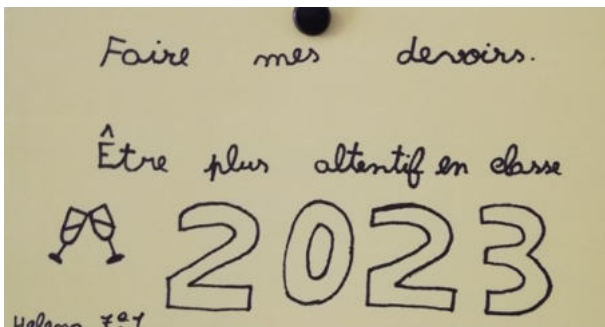 Faire mes devoirs.
Être plus attentif en classe
2023